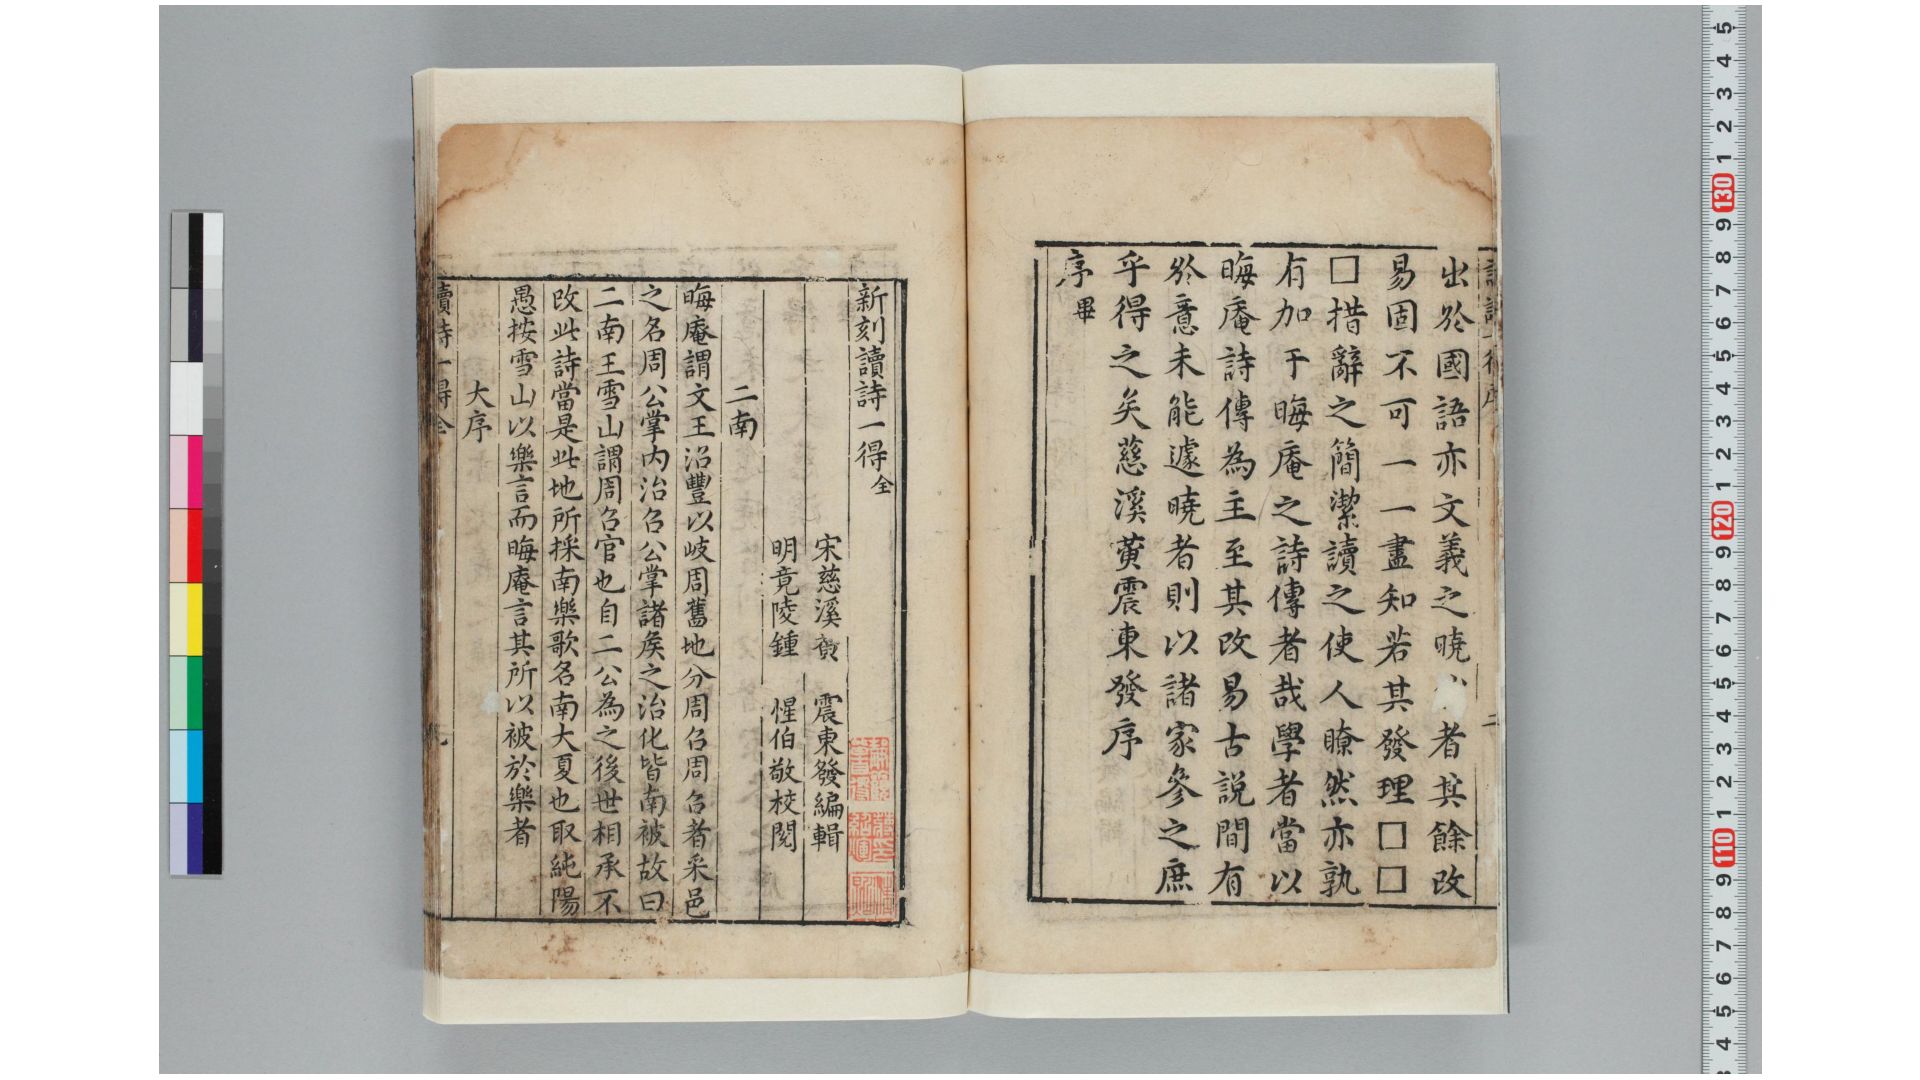 出於國語亦文義之曉者其餘改
易固不可一一盡知若其發理□□
□措辭之簡潔讀之使人瞭然亦孰
有加于晦庵之詩傳者哉學者當以
晦庵詩傳為主至其改易古説間有
於意未能遽曉者則以諸家參之庶
乎得之矣慈溪黃震東發序
序畢
二
新刻讀詩一得全
宋慈溪黃 震東發編輯
明竟陵鍾 惺伯敬校閱
二南
晦庵謂文王治豐以岐周舊地分周召周召者采邑
之名周公掌内治召公掌諸矦之治化皆南被故曰
二南王雪山謂周召官也自二公為之後世相承不
改此詩當是此地所採南樂歌名南大夏也取純陽
愚按雪山以樂言而晦庵言其所以被於樂者
大序
讀詩一得全
130
120
110